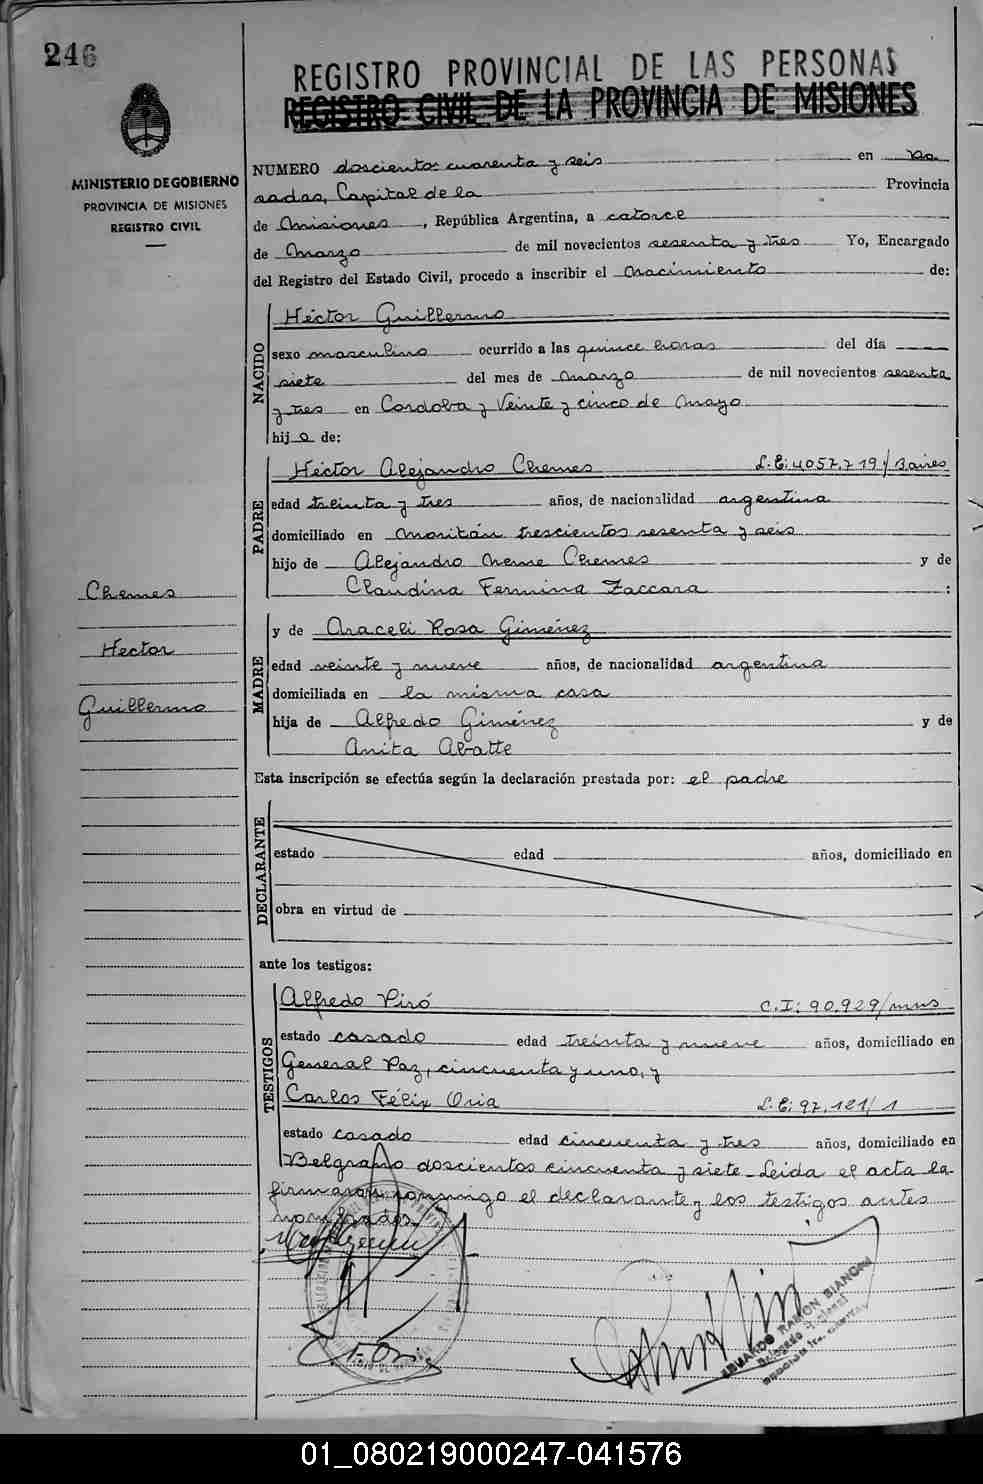 246
REGISTRO PROVINCIAL DE LAS PERSONAS
REGISTRO CIVIL DE LA PROVINCIA DE MISIONES
MINISTERIO DE GOBIERNO
PROVINCIA DE MISIONES
REGISTRO CIVIL
NUMERO doscientos cuarenta y seis en Po
sadas, Capital de la Provincia
de Misiones, República Argentina, a catorce
de Marzo de mil novecientos sesenta y tres Yo, Encargado
del Registro del Estado Civil, procedo a inscribir el Nacimiento de:
NACIDO
Héctor Guillermo
sexo masculino ocurrido a las quince horas del día
siete del mes de Marzo de mil novecientos sesenta
y tres en Cordoba y Veinte y cinco de Mayo
hijo de:
PADRE
Héctor Alejandro Chemes L.E: 4057.719/Baires
edad treinta y tres años, de nacionalidad argentina
domiciliado en trescientos sesenta y seis
hijo de Alejandro Chemes y de
Claudina Fermina Zaccara :
Chemes
Hector
Guillermo
MADRE
y de Araceli Rosa Giménez
edad veinte y nueve años, de nacionalidad argentina
domiciliada en la misma casa
hija de Alfredo Giménez y de
Anita Abatte
Esta inscripción se efectúa según la declaración prestada por: el padre
DECLARANTE
estado edad años, domiciliado en
obra en virtud de
ante los testigos:
TESTIGOS
Alfredo Piró C.I: 90.929/mns
estado casado edad treinta y nueve años, domiciliado en
General Paz, cincuenta y uno, y
Carlos Félix Oria L.E: 97.121/1
estado casado edad cincuenta y tres años, domiciliado en
Belgrano doscientos cincuenta y siete - Leida el acta la
firmaron conmigo el declarante y los testigos antes
nombrados
EDUARDO RAMON BIANCHI
01_080219000247-041576